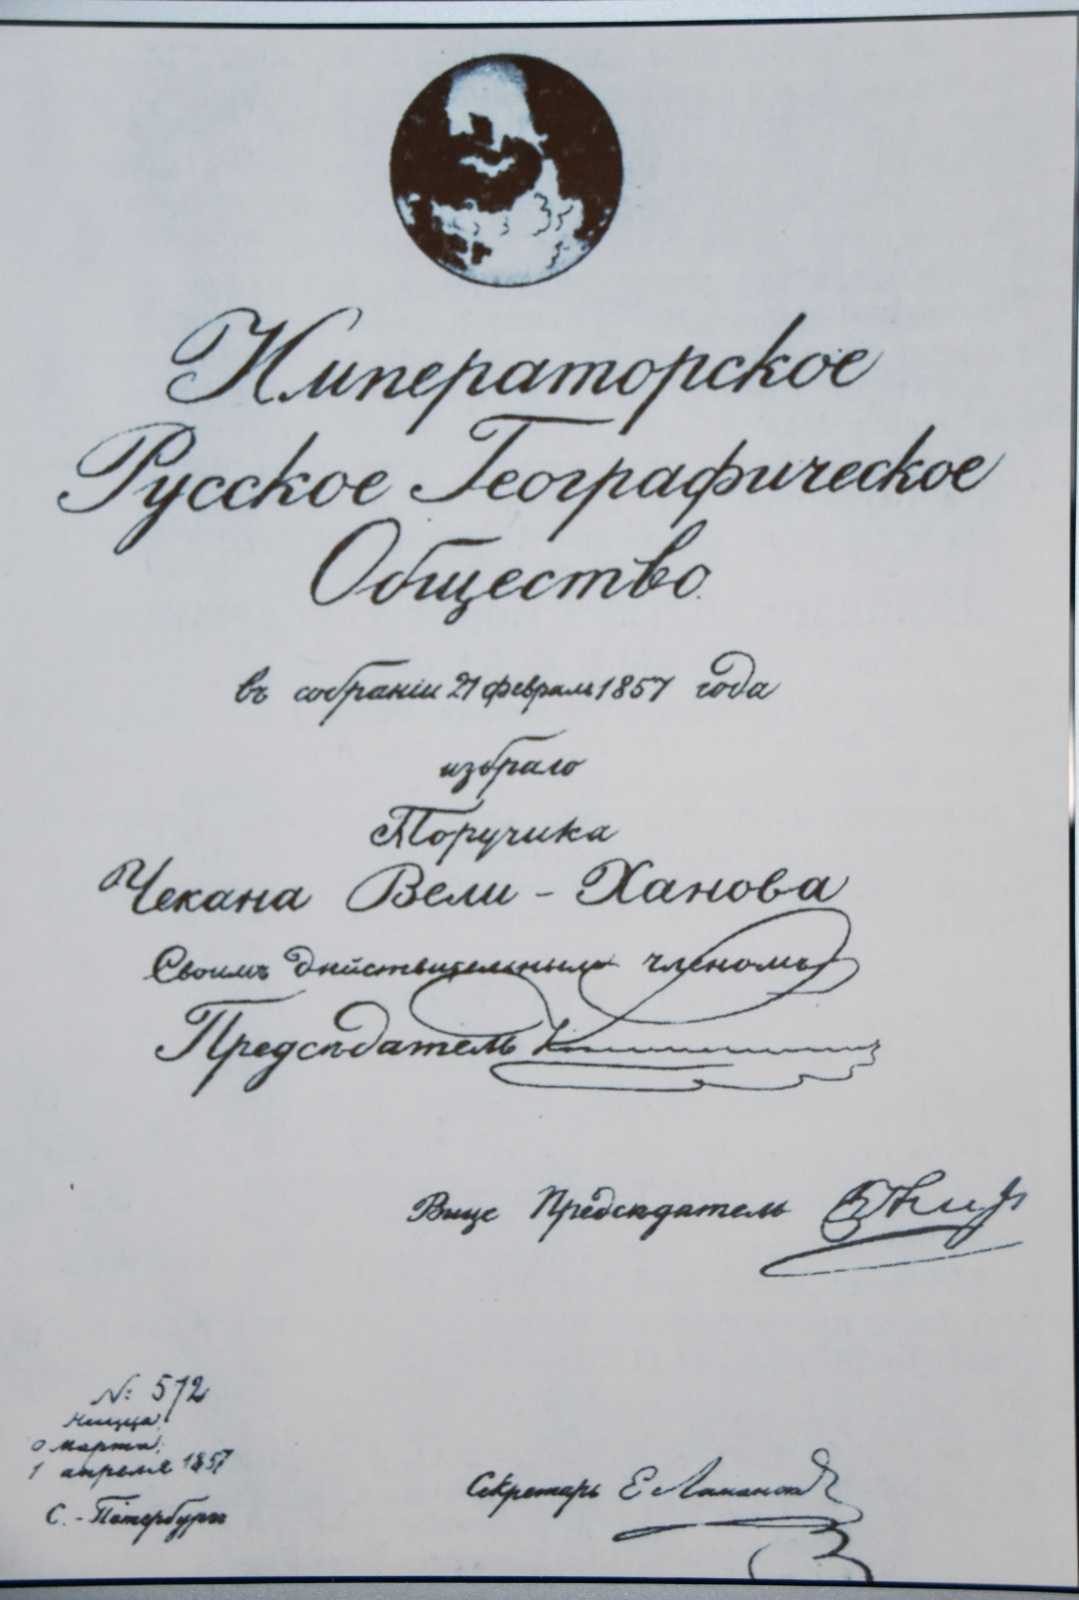 Императорское
Русское Географическое
Общество
въ собранiи 21 февраля 1857 года
избрало
Поручика
Чекана Вели - Ханова
Своимъ дѣйствительнымъ членомъ
Председатель
Вице Председатель
№: 572
Ницца,
марта,
1 апреля 1857
С. - Петербургъ
Секретарь Е Ламанский